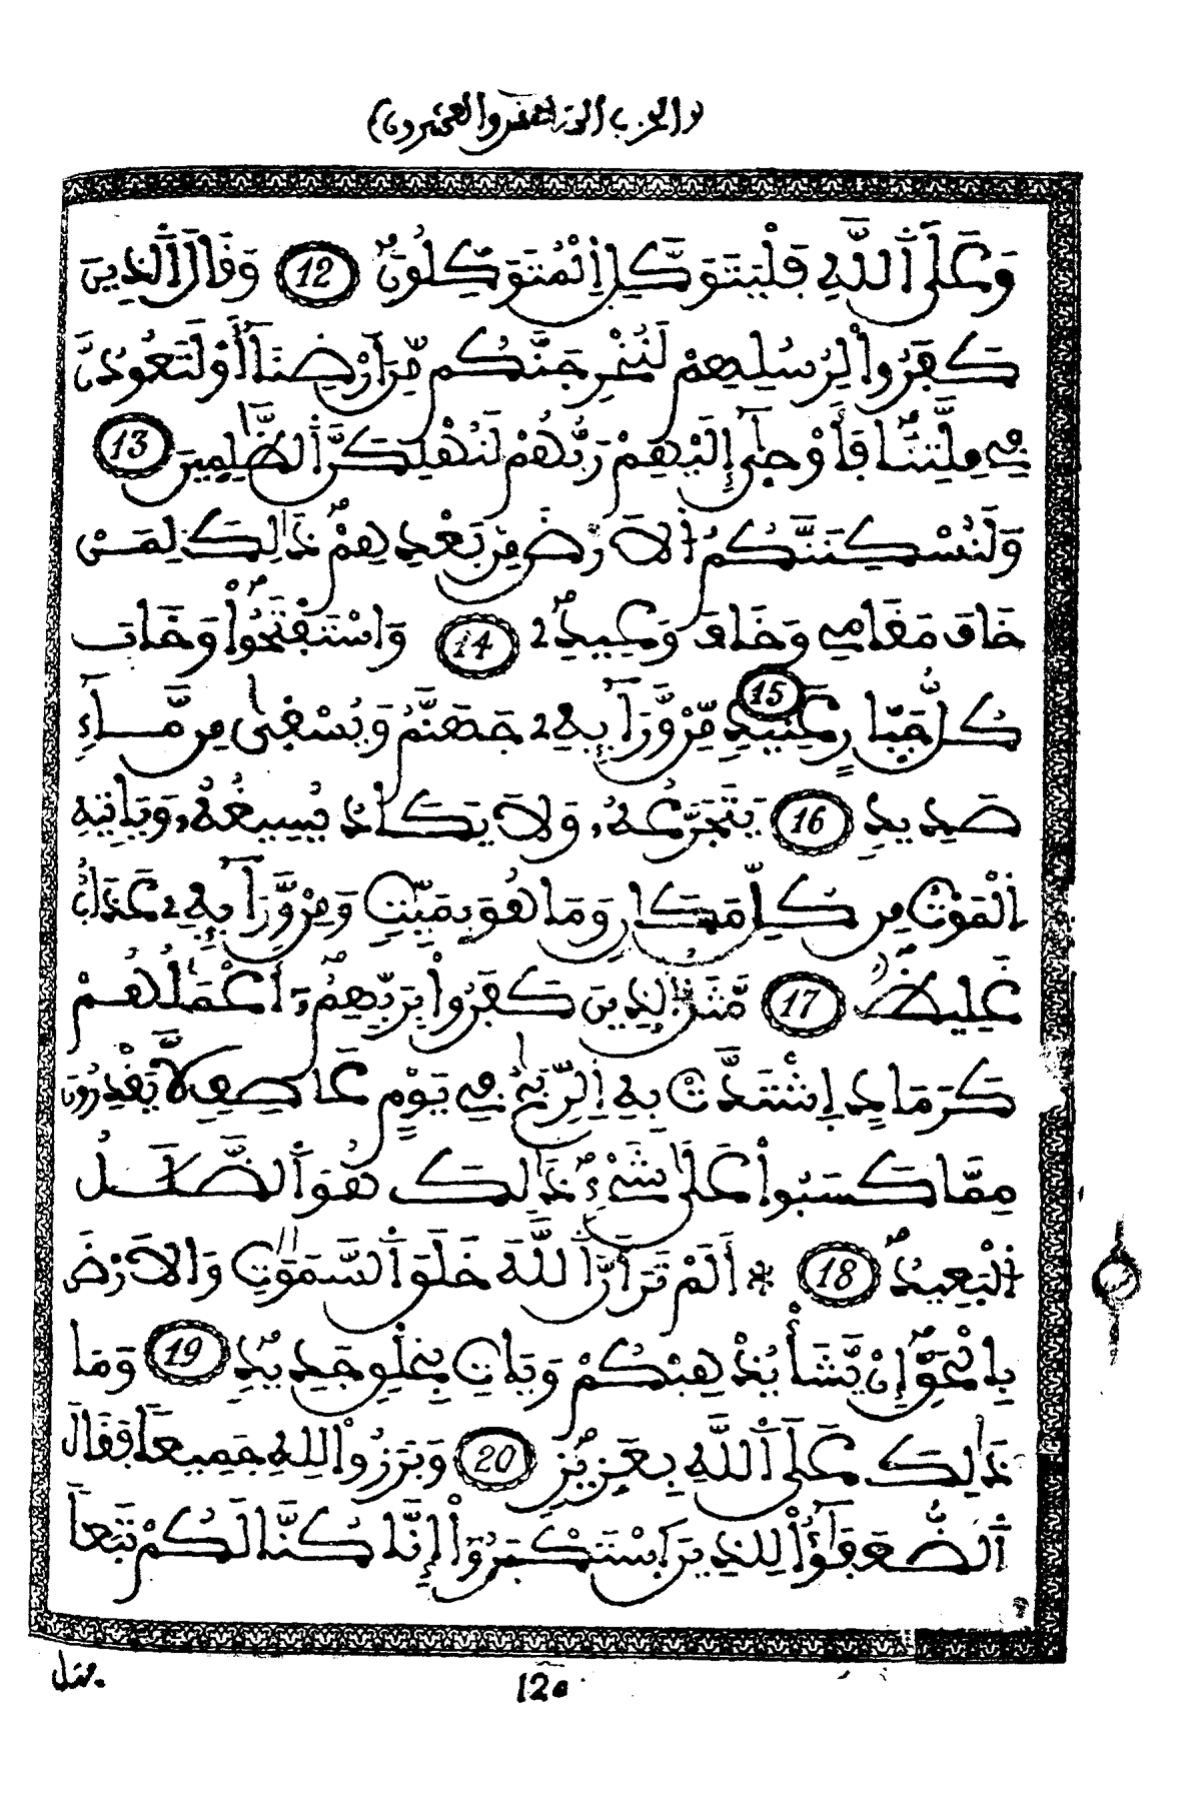 (الحزب السادس والعشرون)
وَعَلَى اَ۬للَّهِ فَلْيَتَوَكَّلِ اِ۬لْمُتَوَكِّلُونَۖ 12 وَقَالَ اَ۬لذِينَ
كَفَرُواْ لِرُسُلِهِمْ لَنُخْرِجَنَّكُم مِّنَ اَرْضِنَآ أَوْ لَتَعُودُنَّ
فِے مِلَّتِنَاۖ فَأَوْحَىٰٓ إِلَيْهِمْ رَبُّهُمْ لَنُهْلِكَنَّ اَ۬لظَّٰلِمِينَ 13
وَلَنُسْكِنَنَّكُمُ اُ۬لَارْضَ مِنۢ بَعْدِهِمْۖ ذَٰلِكَ لِمَنْ
خَافَ مَقَامِے وَخَافَ وَعِيدِۦۖ 14 وَاسْتَفْتَحُواْۖ وَخَابَ
كُلُّ جَبّ۪ارٍ عَنِيدٖ 15 مِّنْ وَّرَآئِهِۦ جَهَنَّمُ وَيُسْقَىٰ مِن مَّآءٖ
صَدِيدٖ 16 يَتَجَرَّعُهُۥ وَلَا يَكَادُ يُسِيغُهُۥ وَيَاتِيهِ
اِ۬لْمَوْتُ مِن كُلِّ مَكَانٖ وَمَا هُوَ بِمَيِّتٖ وَمِنْ وَّرَآئِهِۦ عَذَابٌ
غَلِيظٞۖ 17 مَّثَلُ اُ۬لذِينَ كَفَرُواْ بِرَبِّهِمُۥٓ أَعْمَٰلُهُمْ
كَرَمَادٍ اِ۪شْتَدَّتْ بِهِ اِ۬لرِّيَٰحُ فِے يَوْمٍ عَاصِفٖ لَّا يَقْدِرُونَ
مِمَّا كَسَبُواْ عَلَىٰ شَےْءٖۖ ذَٰلِكَ هُوَ اَ۬لضَّلَٰلُ
اُ۬لْبَعِيدُۖ 18 * أَلَمْ تَرَ أَنَّ اَ۬للَّهَ خَلَقَ اَ۬لسَّمَٰوَٰتِ وَالَارْضَ
بِالْحَقِّۖ إِنْ يَّشَأْ يُذْهِبْكُمْ وَيَاتِ بِخَلْقٖ جَدِيدٖۖ 19 وَمَا
ذَٰلِكَ عَلَى اَ۬للَّهِ بِعَزِيزٖۖ 20 وَبَرَزُواْ لِلهِ جَمِيعاٗ فَقَالَ
اَ۬لضُّعَفَٰٓؤُاْ لِلذِينَ اَ۪سْتَكْبَرُوٓاْ إِنَّا كُنَّا لَكُمْ تَبَعاٗ